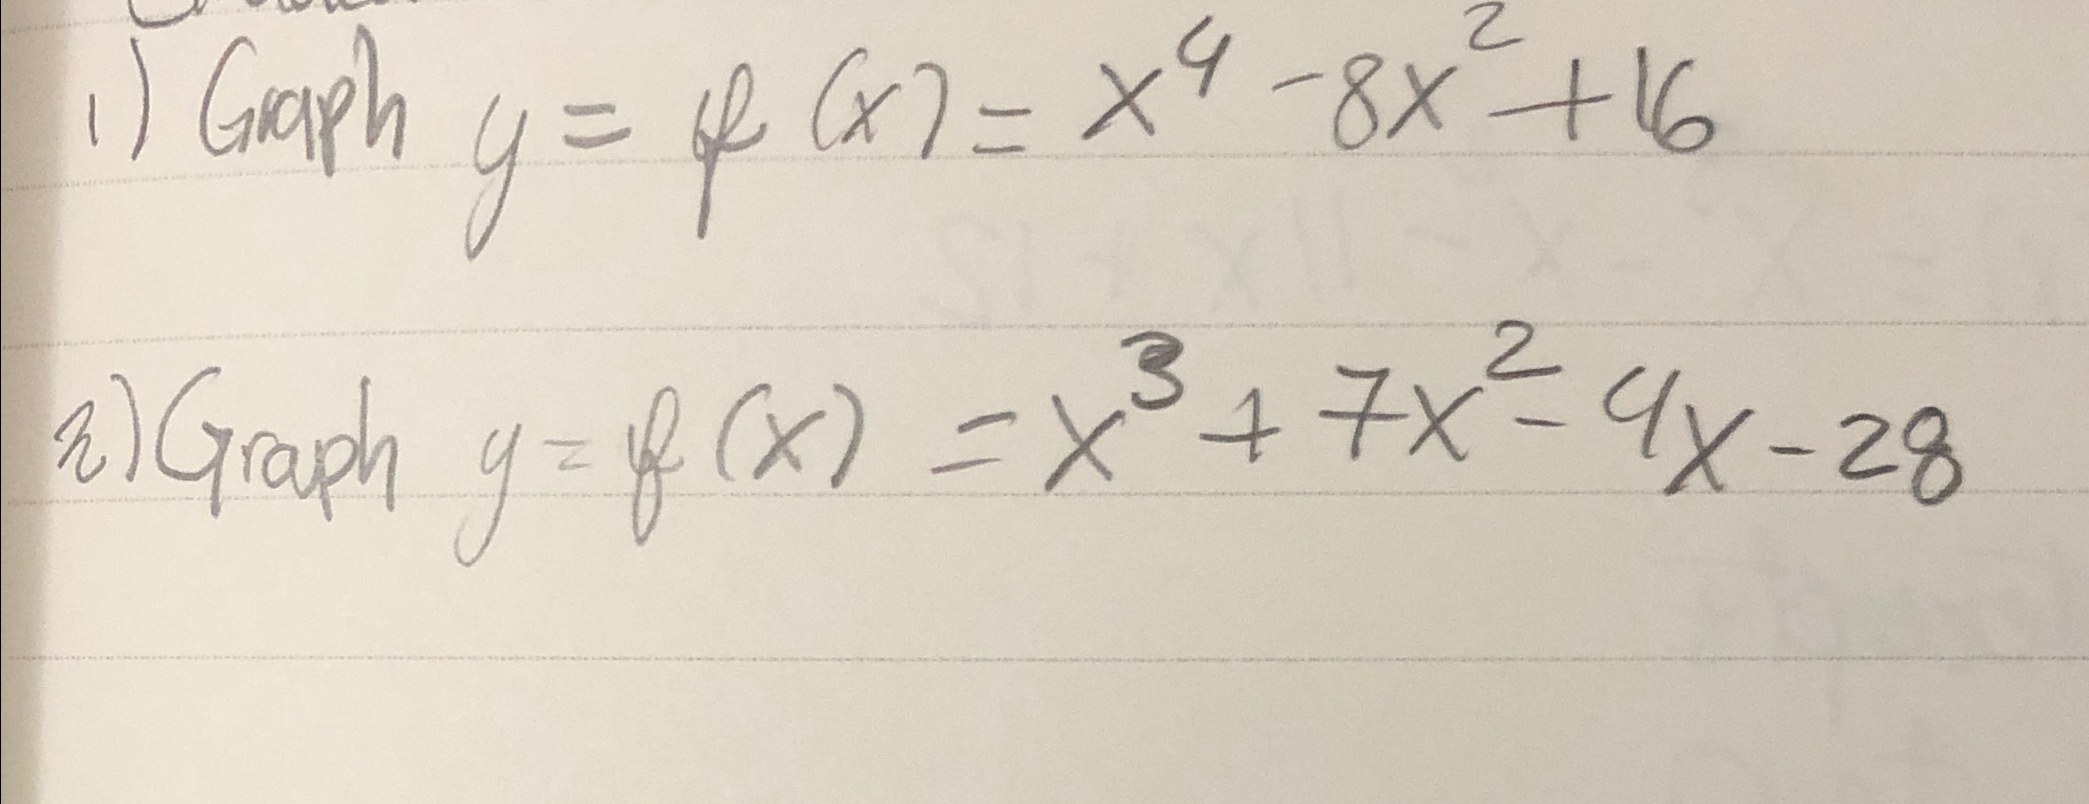 1) Graph y = f(x) = x⁴ - 8x² + 16
2) Graph y = f(x) = x³ + 7x² - 4x - 28